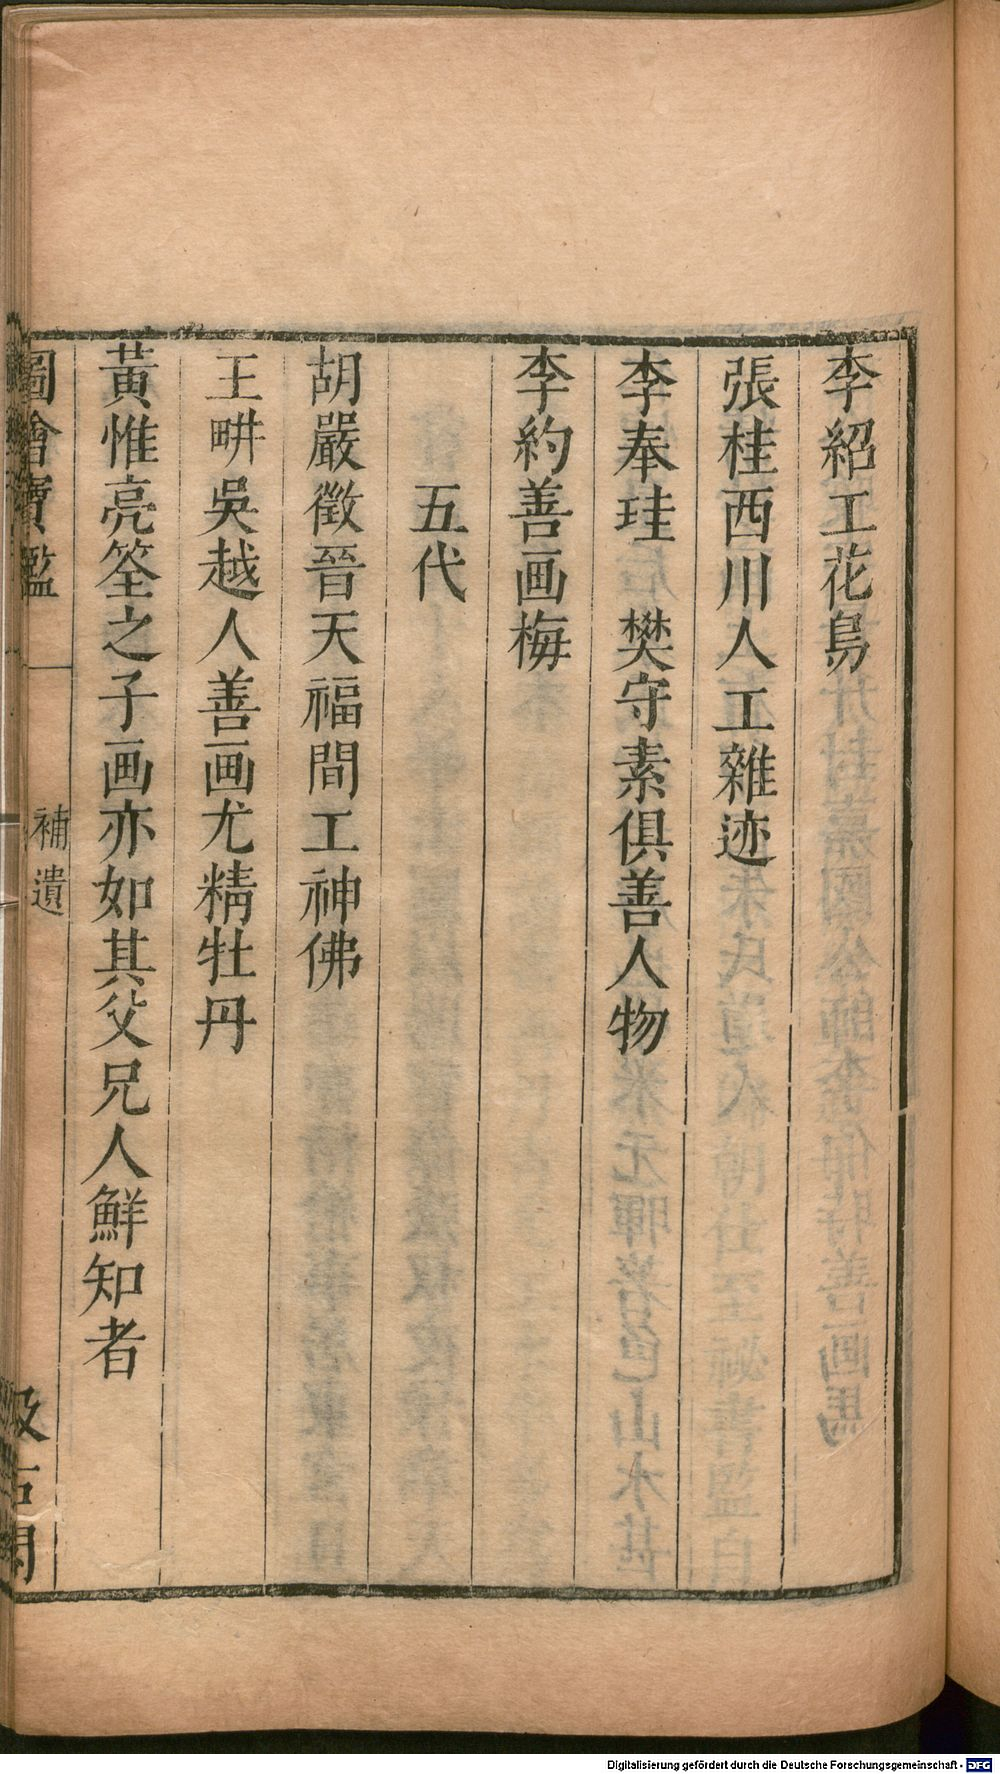 李紹工花鳥
張桂西川人工雜迹
李奉珪　樊守素俱善人物
李約善画梅
五代
胡嚴徵晉天福間工神佛
王畊吳越人善画尤精牡丹
黃惟亮筌之子画亦如其父兄人鮮知者
圖繪寶鑑
補遺
汲古閣
Digitalisierung gefördert durch die Deutsche Forschungsgemeinschaft - DFG